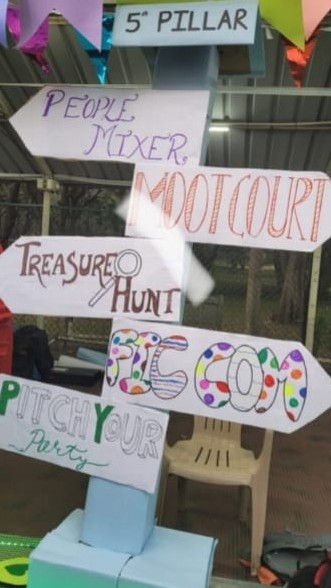 5th PILLAR
PEOPLE
MIXER
MOOTCOURT
TREASURE
HUNT
FIC COM
PITCH YOUR
Party